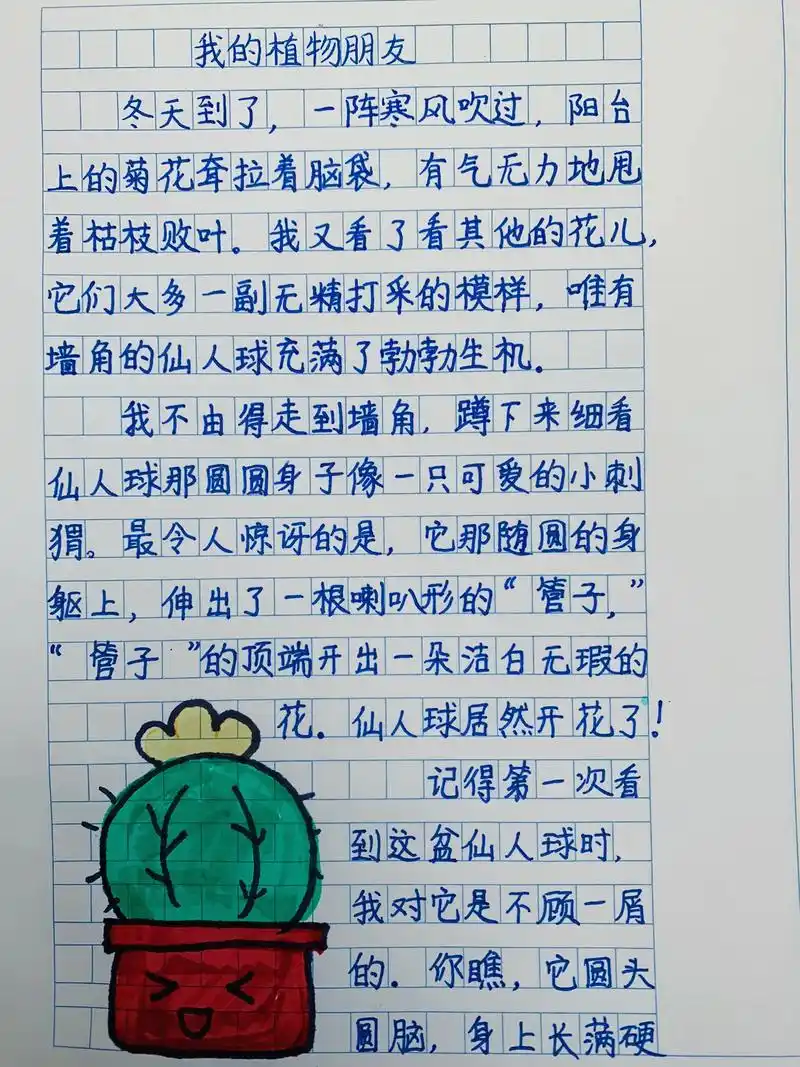 我的植物朋友
冬天到了，一阵寒风吹过，阳台
上的菊花耷拉着脑袋，有气无力地甩
着枯枝败叶。我又看了看其他的花儿，
它们大多一副无精打采的模样，唯有
墙角的仙人球充满了勃勃生机。
我不由得走到墙角，蹲下来细看
仙人球那圆圆身子像一只可爱的小刺
猬。最令人惊讶的是，它那随圆的身
躯上，伸出了一根喇叭形的“管子，”
“管子”的顶端开出一朵洁白无瑕的
花．仙人球居然开花了！
记得第一次看
到这盆仙人球时，
我对它是不顾一屑
的．你瞧，它圆头
圆脑，身上长满硬